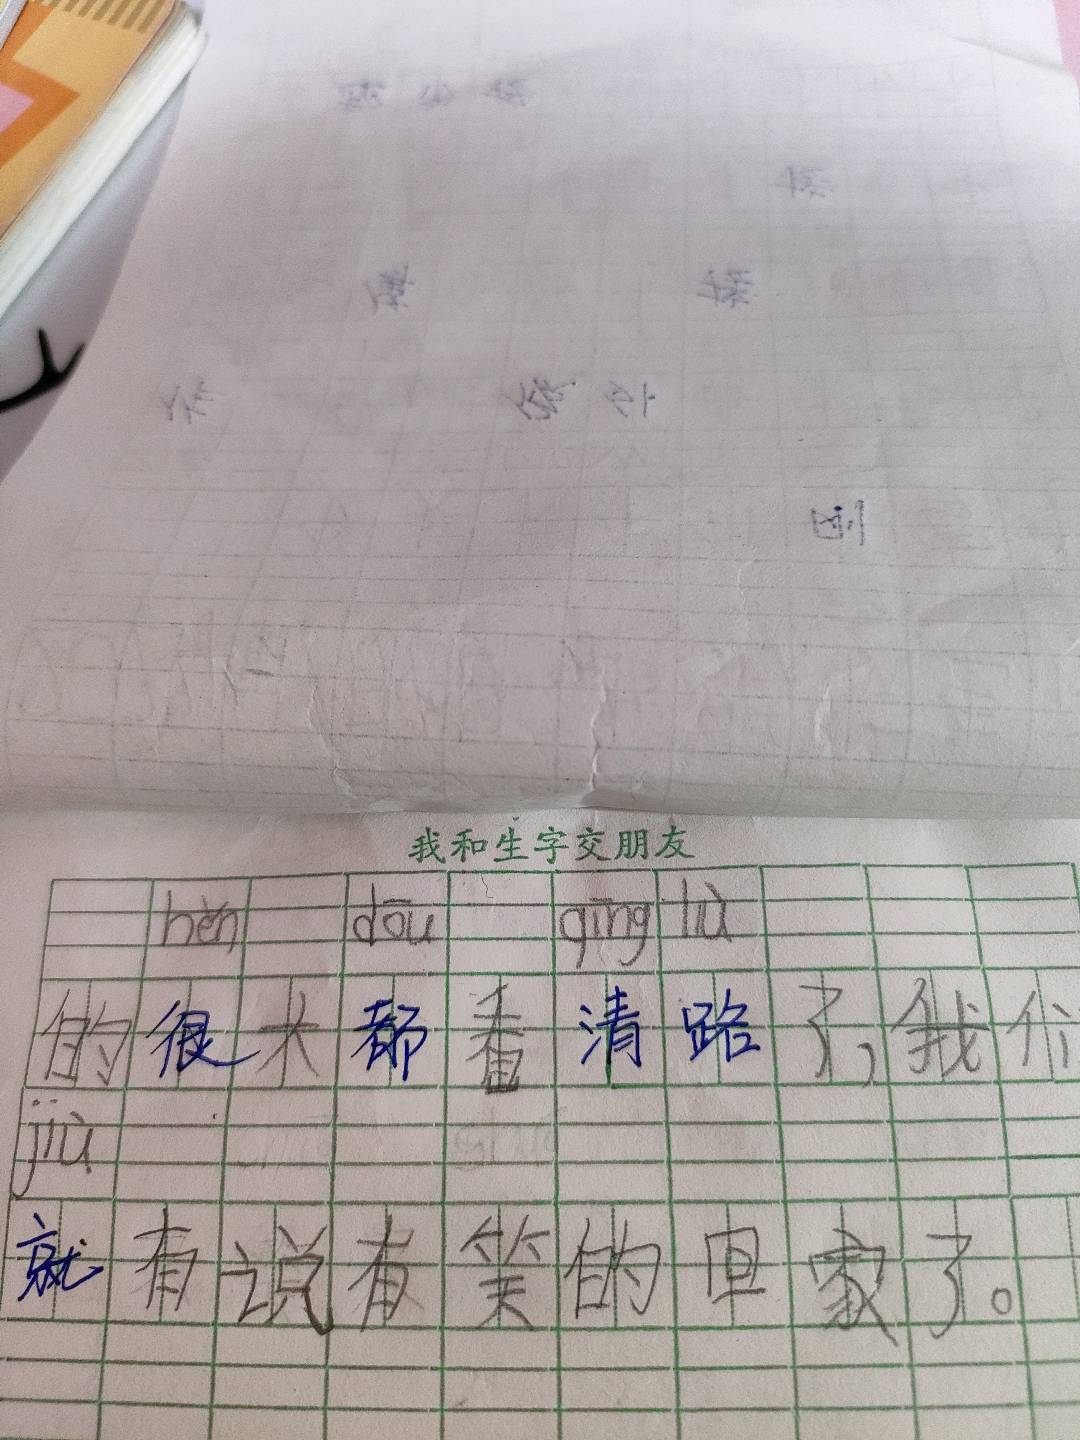 我和生字交朋友
hěn dōu qīng lù
的很大都看清路了，我们
jiù
就有说有笑的回家了。